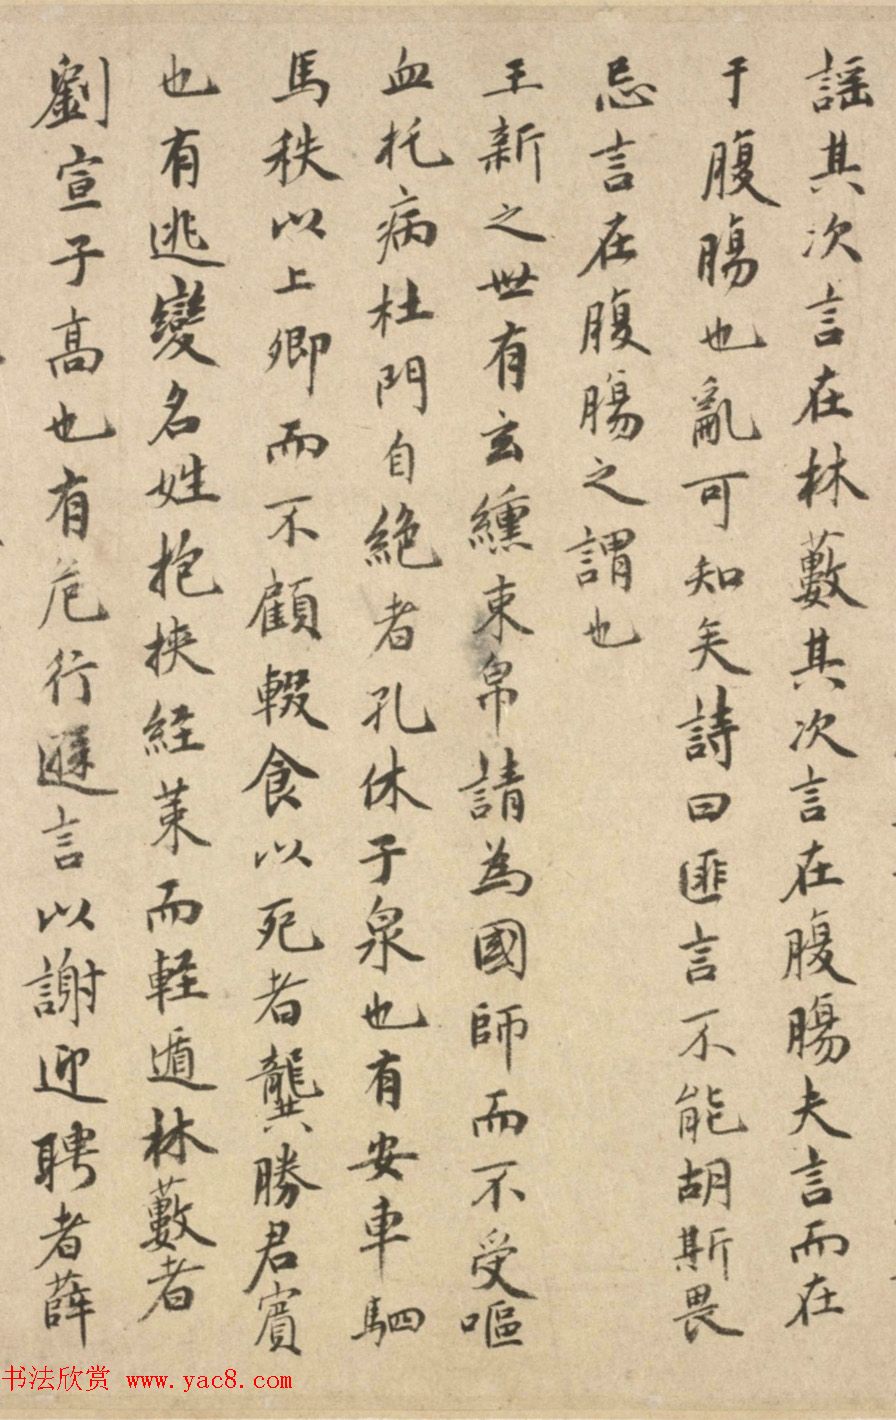 謡其次言在林藪其次言在腹腸夫言而在
于腹腸也亂可知矣詩曰匪言不能胡斯畏
忌言在腹腸之謂也
王新之世有玄纁束帛請為國師而不受嘔
血托病杜門自絶者孔休于泉也有安車駟
馬秩以上卿而不顧輟食以死者龔勝君賓
也有逃變名姓抱挾経䇿而軽遁林藪者
劉宣子高也有危行遜言以謝迎聘者薛
书法欣赏 www.yac8.com